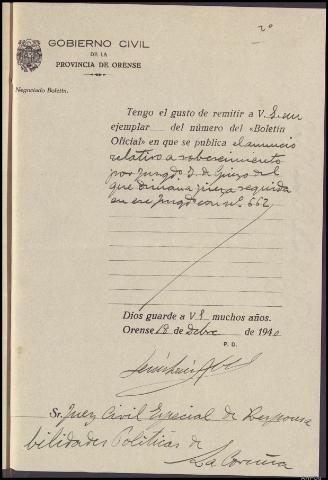 2º
GOBIERNO CIVIL
DE LA
PROVINCIA DE ORENSE
Negociado Boletín.
Tengo el gusto de remitir a V. S. un
ejemplar del número del «Boletín
Oficial» en que se publica el anuncio
relativo a sobreseimiento
por Juzgdo I. de Ginzo del
que dimana pieza seguida
en ese Juzgdo con nº 662
Dios guarde a V S muchos años.
Orense 18 de Dcbre de 1940
P. D.
Sr. Juez Civil Especial de Responsa
bilidades Políticas de
La Coruña